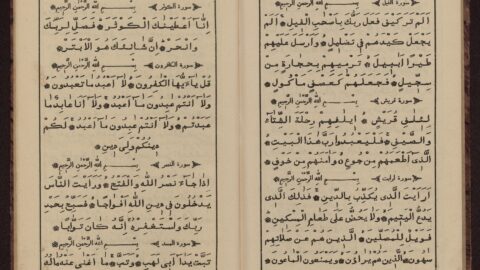 سورة الفيل بسم الله الرحمن الرحيم
الم تر كيف فعل ربك باصحب الفيل الم
يجعل كيدهم في تضليل وارسل عليهم
طيرا ابابيل ترميهم بحجارة من
سجيل فجعلهم كعصف ماكول
سورة قريش بسم الله الرحمن الرحيم
لئلف قريش ايلفهم رحلة الشتاء
والصيف فليعبدوا رب هذا البيت
الذى اطعمهم من جوع وءامنهم من خوف
سورة ارايت بسم الله الرحمن الرحيم
ارءيت الذى يكذب بالدين فذلك الذى
يدع اليتيم ولا يحض على طعام المسكين
فويل للمصلين الذين هم عن صلاتهم
ساهون الذين هم يراءون ويمنعون الماعون
سورة الكوثر بسم الله الرحمن الرحيم
انا اعطينك الكوثر فصل لربك
وانحر ان شانئك هو الابتر
سورة الكفرون بسم الله الرحمن الرحيم
قل يايها الكفرون لا اعبد ما تعبدون
ولا انتم عبدون ما اعبد ولا انا عابد ما
عبدتم ولا انتم عبدون ما اعبد لكم
دينكم ولى دين
سورة النصر بسم الله الرحمن الرحيم
اذا جاء نصر الله والفتح ورايت الناس
يدخلون في دين الله افواجا فسبح بحمد
ربك واستغفره انه كان توابا
سورة المسد بسم الله الرحمن الرحيم
تبت يدا ابى لهب وتب ما اغنى عنه ماله